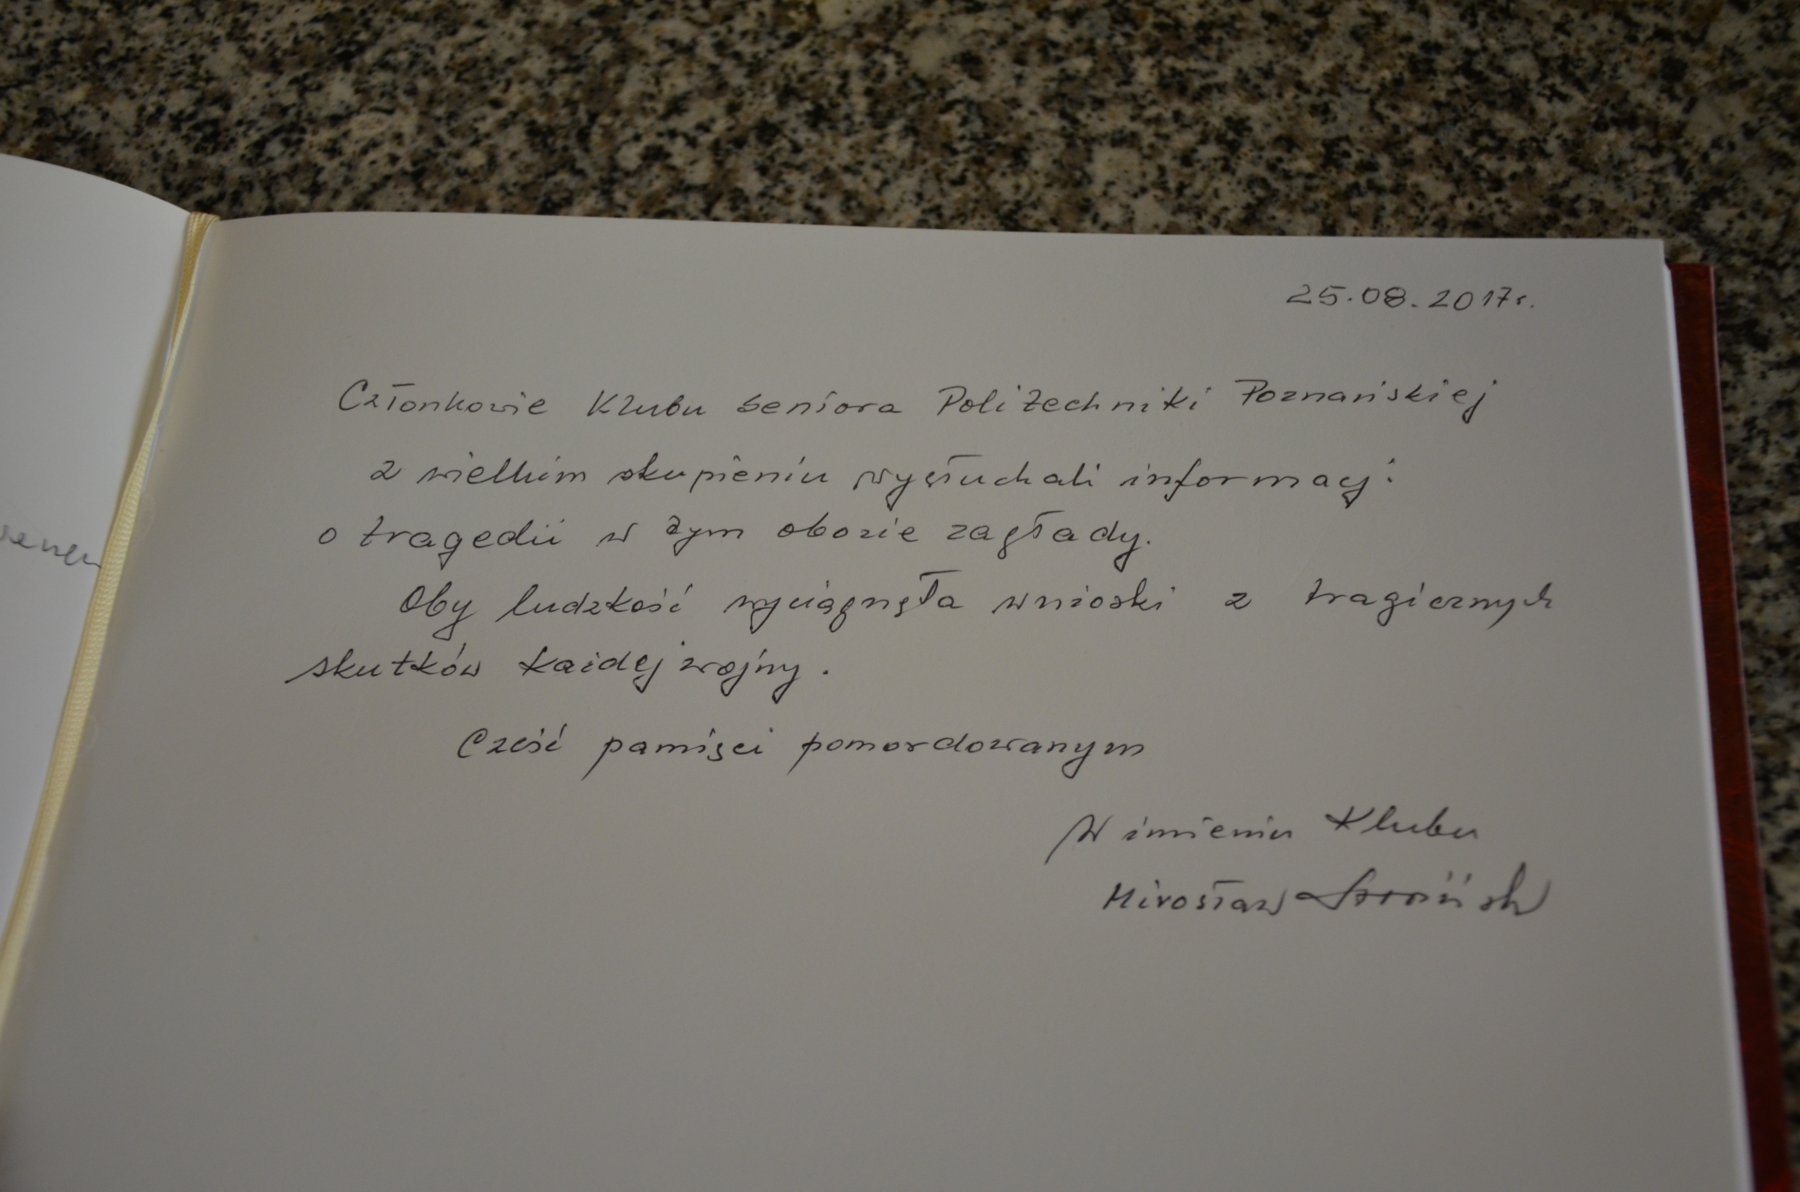 25.08.2017r.
Członkowie Klubu Seniora Politechniki Poznańskiej
z wielkim skupieniu wysłuchali informacji
o tragedii w tym obozie zagłady.
Oby ludzkość wyciągnęła wnioski z tragicznych
skutków każdej wojny.
Cześć pamięci pomordowanym
W imieniu Klubu
Mirosław